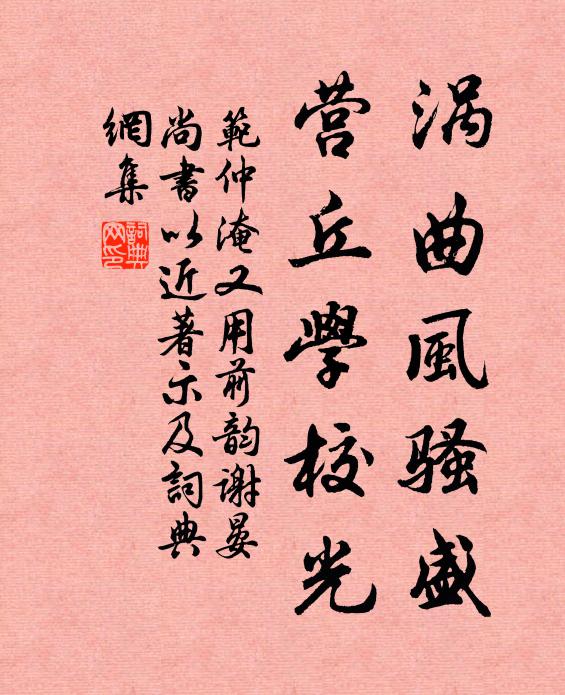 涡曲風骚盛
营丘學校光
範仲淹又用前韵谢晏
尚書以近著示及詞典
網集
詞典網印